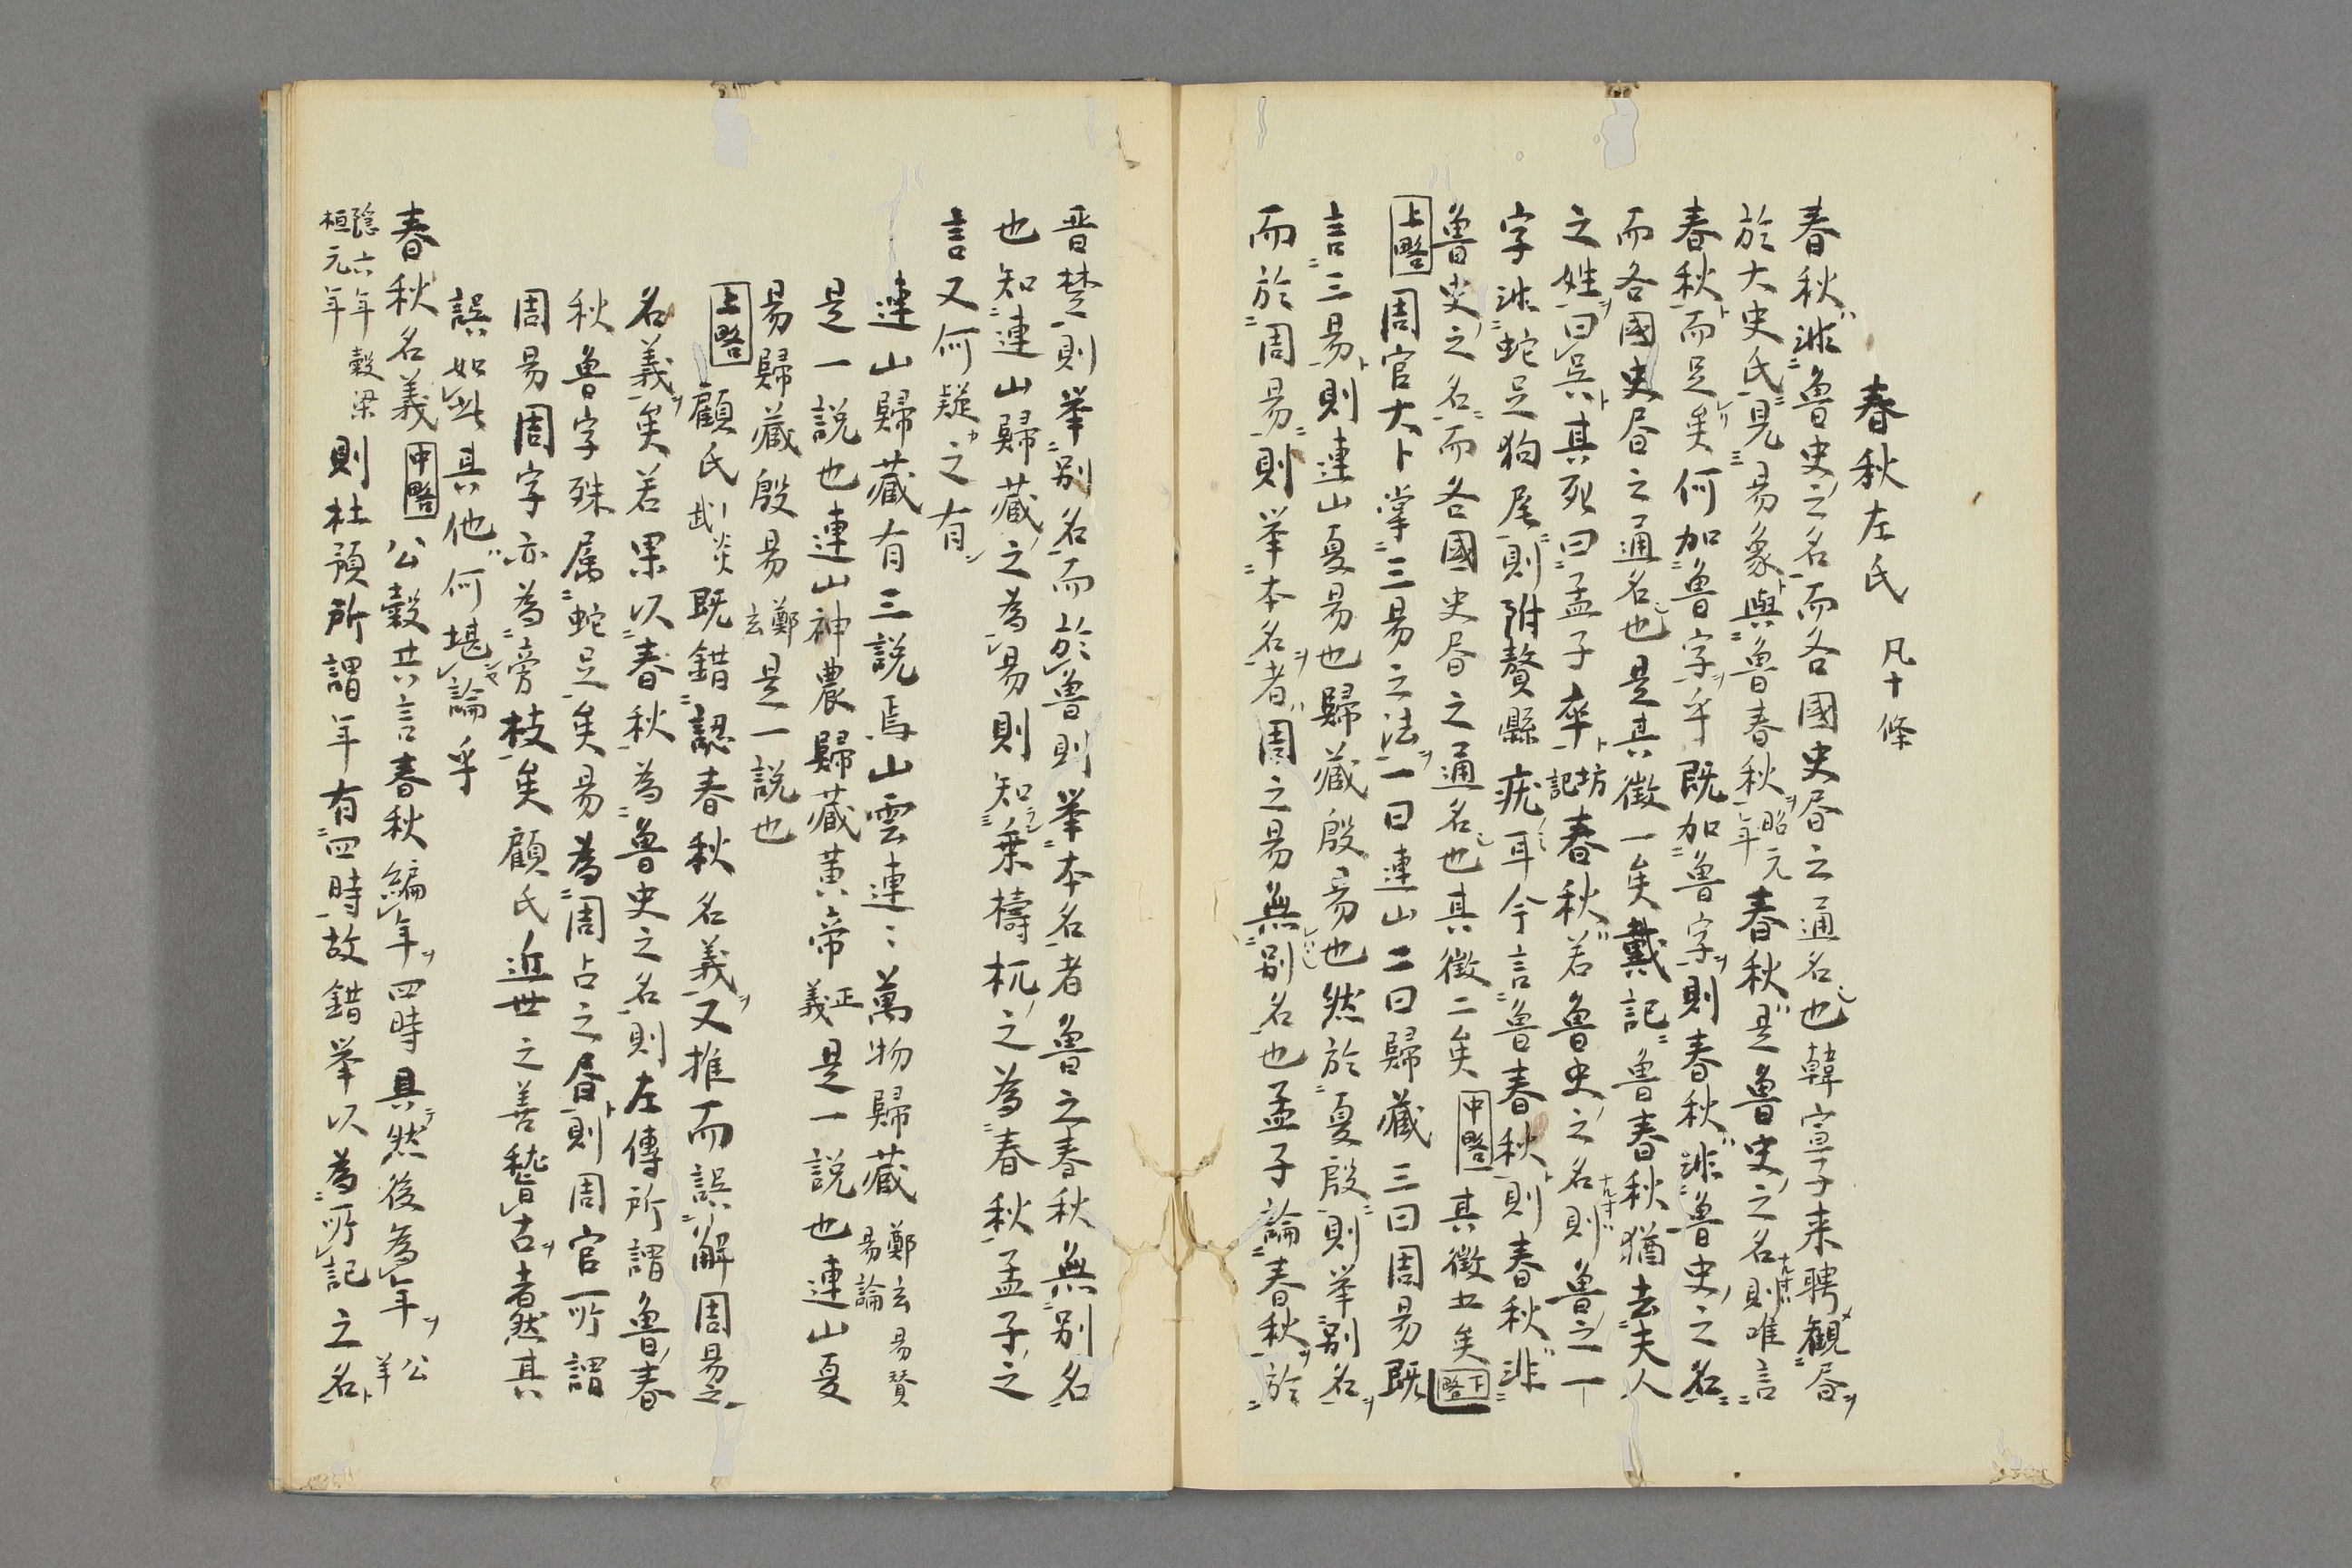 春秋左氏　凡十條
春秋非魯史之名而各國史書之通名也韓宣子来聘観書
於大史氏見易象與魯春秋昭元年春秋是魯史之名則唯言
春秋而足矣何加魯字乎既加魯字則春秋非魯史之名
而各國史書之通名也是其徴一矣戴記魯春秋猶去夫人
之姓曰呉其死曰孟子卒坊記春秋若魯史之名則魯之一
字非蛇足狗尾則附贅縣疣耳今言魯春秋則春秋非
魯史之名而各國史書之通名也其徴二矣中略其徴五矣下略
上略周官大卜掌三易之法一曰連山二曰歸藏三曰周易既
言三易則連山夏易也歸藏殷易也然於夏殷則挙別名
而於周易則挙本名者周之易無別名也孟子論春秋於
晋楚則挙別名而於魯則挙本名者魯之春秋無別名
也知連山歸藏之為易則知乗檮杌之為春秋孟子之
言又何疑之有
連山歸藏有三説焉山雲連〻萬物歸藏鄭玄易賛易論
是一説也連山神農歸藏黄帝正義是一説也連山夏
易歸藏殷易鄭玄是一説也
上略顧氏武炎既錯認春秋名義又推而誤解周易之
名義矣若果以春秋為魯史之名則左傳所謂魯春
秋魯字殊属蛇足矣易為周占之書則周官所謂
周易周字亦為旁枝矣顧氏近世之善稽古者然其
誤如此其他何堪論乎
春秋名義中略公穀共言春秋編年四時具然後為年公羊
隠六年桓元年穀梁則杜預所謂年有四時故錯挙以為所記之名